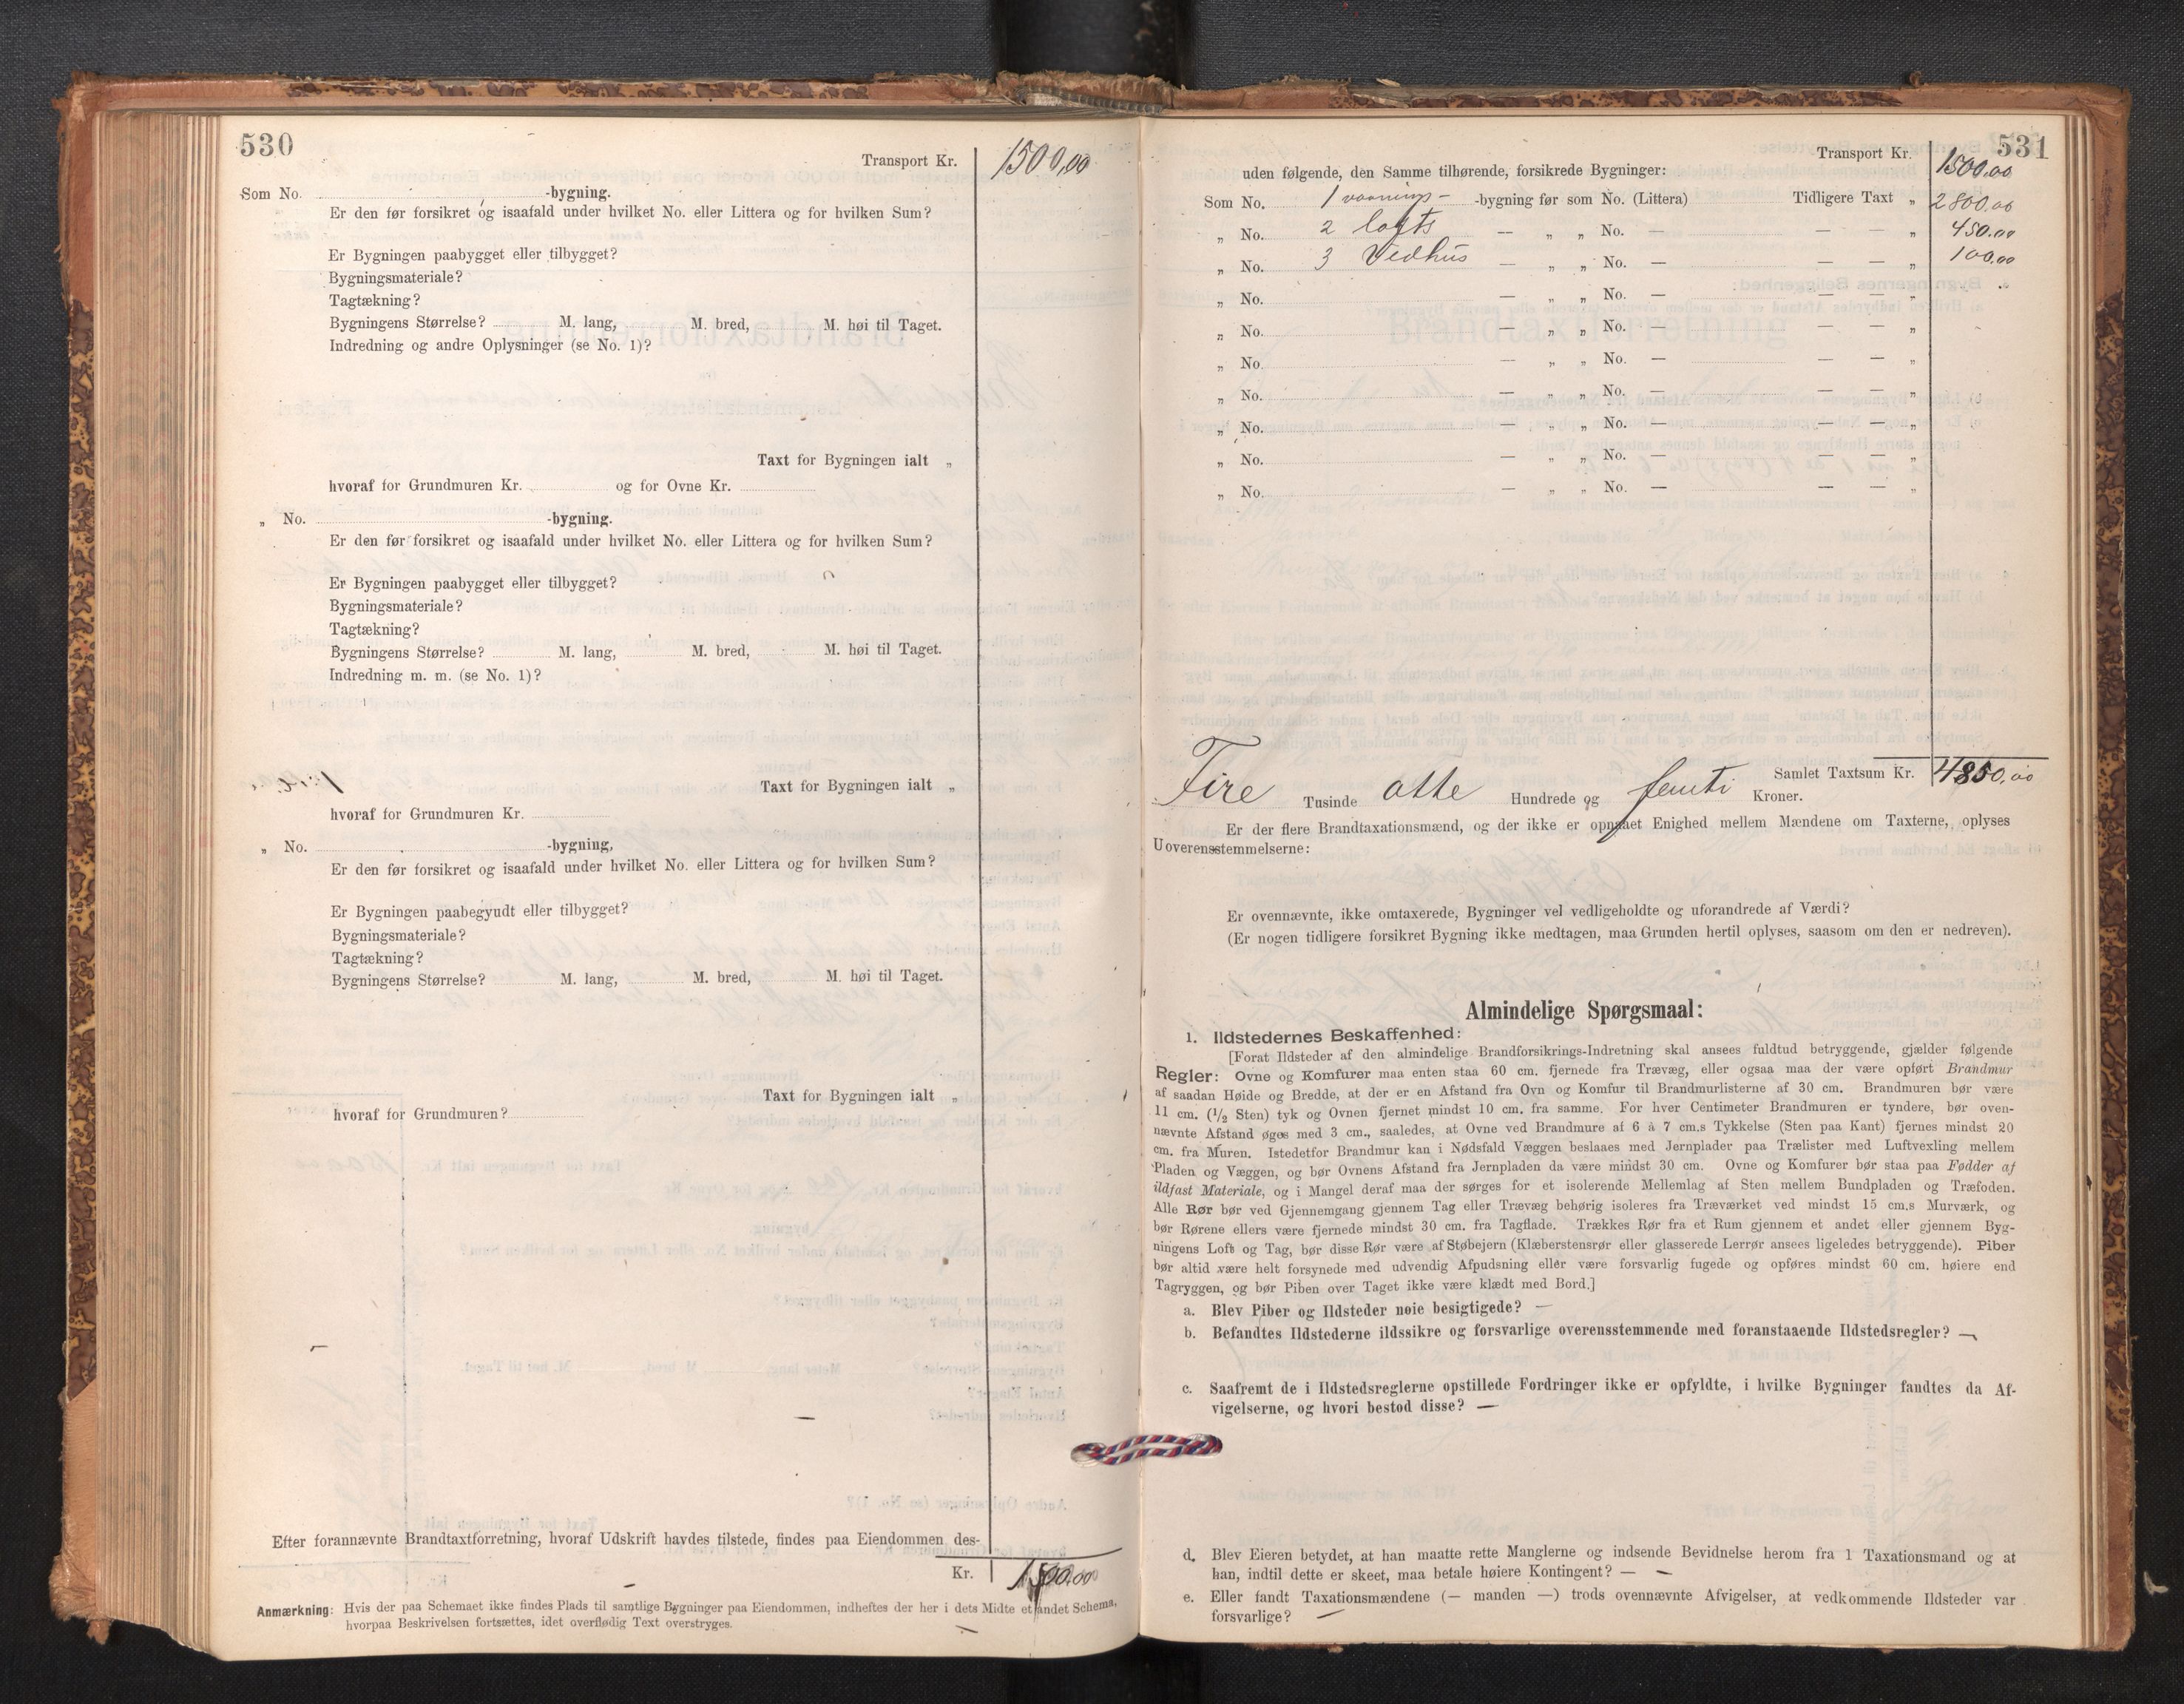 530
Transport Kr. 1500,00
Som No. -bygning.
Er den før forsikret og isaafald under hvilket No. eller Littera og for hvilken Sum?
Er Bygningen paabygget eller tilbygget?
Bygningsmateriale?
Tagtækning?
Bygningens Størrelse? M. lang, M. bred, M. høi til Taget.
Indredning og andre Oplysninger (se No. 1)?
Taxt for Bygningen ialt „
hvoraf for Grundmuren Kr. og for Ovne Kr.
„ No. -bygning.
Er den før forsikret og isaafald under hvilket No. eller Littera og for hvilken Sum?
Er Bygningen paabygget eller tilbygget?
Bygningsmateriale?
Tagtækning?
Bygningens Størrelse? M. lang, M. bred, M. høi til Taget.
Indredning m. m. (se No. 1)?
Taxt for Bygningen ialt „
hvoraf for Grundmuren Kr.
„ No. -bygning,
Er den før forsikret og isaafald under hvilket No. eller Littera og for hvilken Sum?
Er Bygningen paabegyudt eller tilbygget?
Bygningsmateriale?
Tagtækning?
Bygningens Størrelse? M. lang, M. bred, M. høi til Taget.
Taxt for Bygningen ialt „
hvoraf for Grundmuren?
Efter forannævnte Brandtaxtforretning, hvoraf Udskrift havdes tilstede, findes paa Eiendommen des-
Kr. 1500.00
Anmærkning: Hvis der paa Schemaet ikke findes Plads til samtlige Bygninger paa Eiendommen, indheftes der her i dets Midte et andet Schema,
hvorpaa Beskrivelsen fortsættes, idet overflødig Text overstryges.
531
Transport Kr. 1500.00
uden følgende, den Samme tilhørende, forsikrede Bygninger:
Som No. 1 vaanings- -bygning før som No. (Littera) Tidligere Taxt „ 2800.00
„ No. 2 lofts — „ „ No. — — — „ 450.00
„ No. 3 Vedhus — „ „ No. — — — „ 100.00
„ No. — „ „ No. — — — „
„ No. — „ „ No. — — — „
„ No. — „ „ No. — — — „
„ No. — „ „ No. — — — „
„ No. — „ „ No. — — — „
„ No. — „ „ No. — — — „
„ No. — „ „ No. — — — „
Samlet Taxtsum Kr. 4850.00
Fire Tusinde otte Hundrede og femti Kroner.
Er der flere Brandtaxationsmænd, og der ikke er opnaaet Enighed mellem Mændene om Taxterne, oplyses
Uoverensstemmelserne:
Er ovennævnte, ikke omtaxerede, Bygninger vel vedligeholdte og uforandrede af Værdi?
(Er nogen tidligere forsikret Bygning ikke medtagen, maa Grunden hertil oplyses, saasom om den er nedreven).
Almindelige Spørgsmaal:
1. Ildstedernes Beskaffenhed:
[Forat Ildsteder af den almindelige Brandforsikrings-Indretning skal ansees fuldtud betryggende, gjælder følgende
Regler: Ovne og Komfurer maa enten staa 60 cm. fjernede fra Trævæg, eller ogsaa maa der være opført Brandmur
af saadan Høide og Bredde, at der er en Afstand fra Ovn og Komfur til Brandmurlisterne af 30 cm. Brandmuren bør være
11 cm. (1/2 Sten) tyk og Ovnen fjernet mindst 10 cm. fra samme. For hver Centimeter Brandmuren er tyndere, bør oven-
nævnte Afstand øges med 3 cm., saaledes, at Ovne ved Brandmure af 6 á 7 cm.s Tykkelse (Sten paa Kant) fjernes mindst 20
cm. fra Muren. Istedetfor Brandmur kan i Nødsfald Væggen beslaaes med Jernplader paa Trælister med Luftvexling mellem
Pladen og Væggen, og bør Ovnens Afstand fra Jernpladen da være mindst 30 cm. Ovne og Komfurer bør staa paa Fødder af
ildfast Materiale, og i Mangel deraf maa der sørges for et isolerende Mellemlag af Sten mellem Bundpladen og Træfoden.
Alle Rør bør ved Gjennemgang gjennem Tag eller Trævæg behørig isoleres fra Træværket ved mindst 15 cm.s Murværk, og
bør Rørene ellers være fjernede mindst 30 cm. fra Tagflade. Trækkes Rør fra et Rum gjennem et andet eller gjennem Byg-
ningens Loft og Tag, bør disse Rør være af Støbejern (Klæberstensrør eller glasserede Lerrør ansees ligeledes betryggende). Piber
bør altid være helt forsynede med udvendig Afpudsning eller være forsvarlig fugede og opføres mindst 60 cm. høiere end
Tagryggen, og bør Piben over Taget ikke være klædt med Bord.]
a. Blev Piber og Ildsteder nøie besigtigede? —
b. Befandtes Ildstederne ildssikre og forsvarlige overensstemmende med foranstaaende Ildstedsregler? —
c. Saafremt de i Ildstedsreglerne opstillede Fordringer ikke er opfyldte, i hvilke Bygninger fandtes da Af-
vigelserne, og hvori bestod disse? —
d. Blev Eieren betydet, at han maatte rette Manglerne og indsende Bevidnelse herom fra 1 Taxationsmand og at
han, indtil dette er skeet, maa betale høiere Kontingent? — —
e. Eller fandt Taxationsmændene (— manden —) trods ovennævnte Afvigelser, at vedkommende Ildsteder var
forsvarlige? —